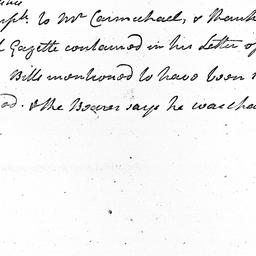 to Mr Carmichael, & thank
Gazette contained in his Letter of
Bills mentioned to have been
& the Bearer says he was cha